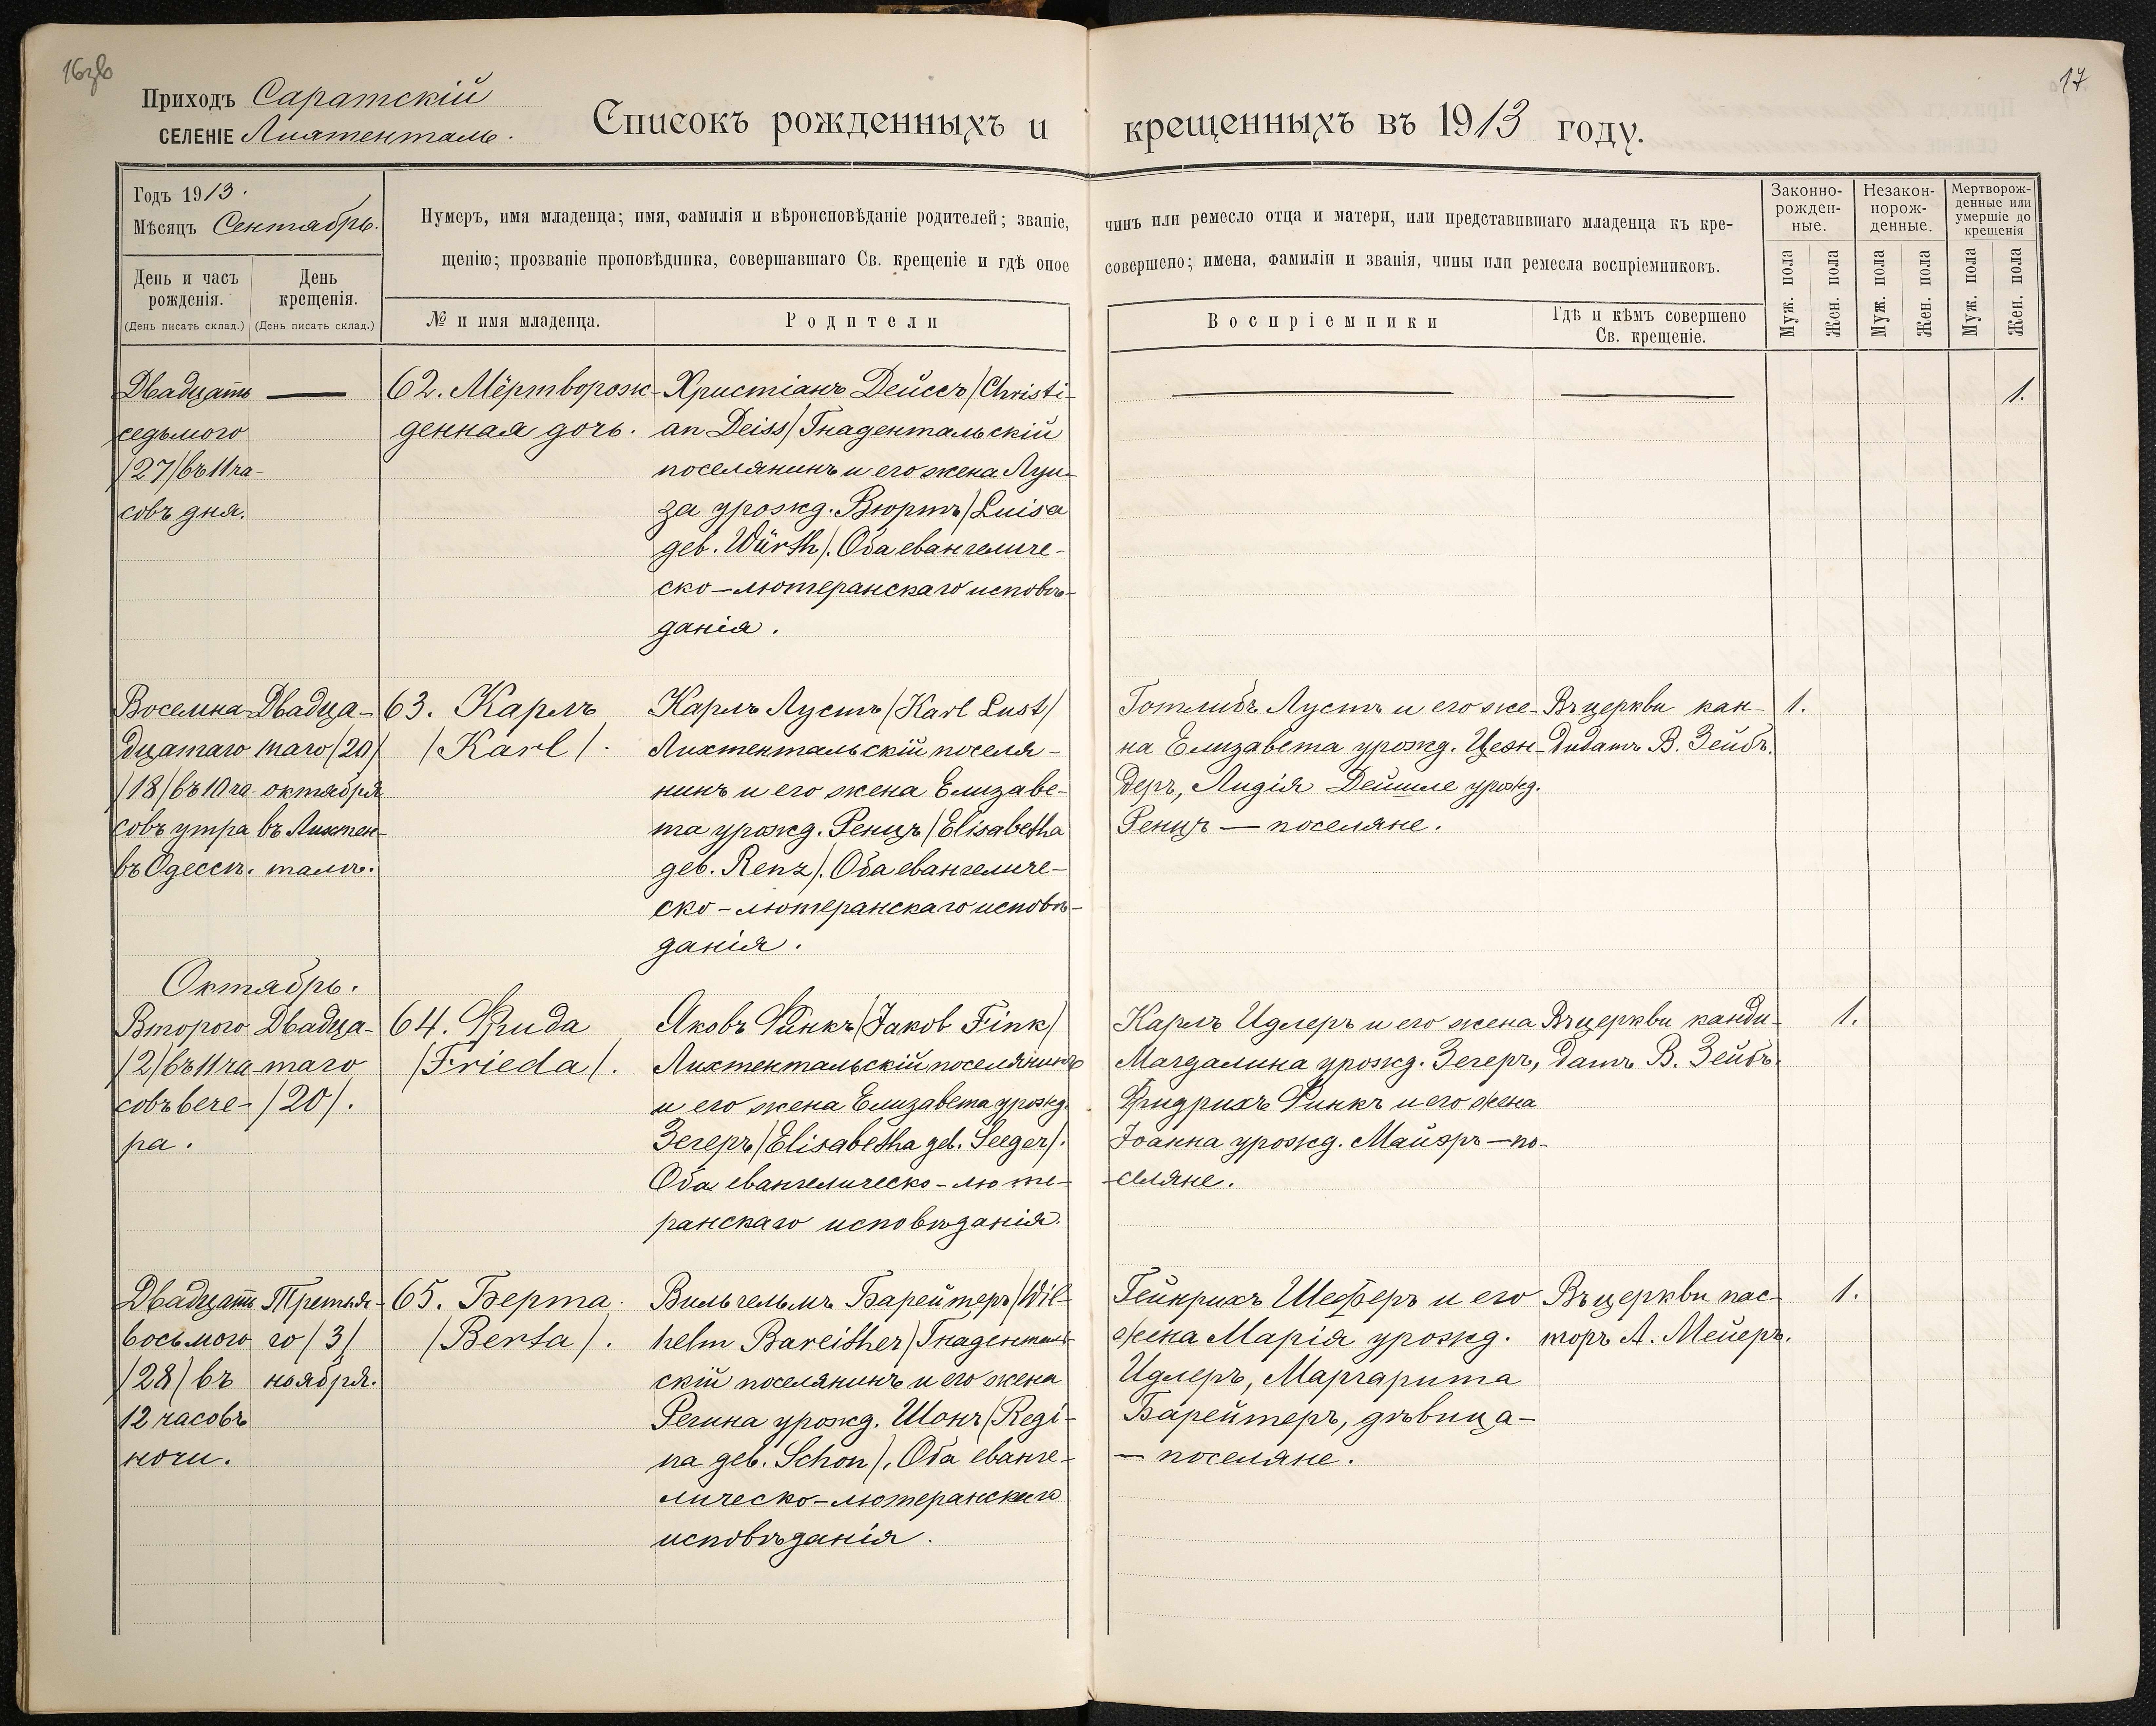 16зв
17
Приходъ Саратскій
СЕЛЕНІЕ Лихтенталь.
Списокъ рожденныхъ и крещенныхъ въ 1913 году.
Годъ 1913.
Мѣсяцъ Сентябрь.
День и часъ рожденія.
(День писать склад.)
День крещенія.
(День писать склад.)
Нумеръ, имя младенца; имя, фамилія и вѣроисповѣданіе родителей; званіе, чинъ или ремесло отца и матери, или представившаго младенца къ кре-
щенію; прозваніе проповѣдника, совершавшаго Св. крещеніе и гдѣ оное совершено; имена, фамиліи и званія, чины или ремесла воспріемниковъ.
№ и имя младенца.
Родители
Воспріемники
Гдѣ и кѣмъ совершено
Св. крещеніе.
Законно-
рожден-
ные.
Незакон-
норож-
денные.
Мертворож-
денные или
умершіе до
крещенія
Муж. пола
Жен. пола
Муж. пола
Жен. пола
Муж. пола
Жен. пола
Двадцать
седьмого
/27/ въ 11 ча-
совъ дня.
62. Мёртворож-
денная дочь.
Христіанъ Дейссъ /Christi-
an Deiss/ Гнадентальскій
поселянинъ и его жена Луи-
за урожд. Вюртъ /Luisa
geb. Würth/. Оба евангеличе-
ско-лютеранскаго исповѣ-
данія.
1.
Восемна-
дцатаго
/18/ въ 10 ча-
совъ утра
въ Одессѣ.
Двадца-
таго /20/
октября
въ Лихтен-
талѣ.
63. Карлъ
/Karl/.
Карлъ Лустъ /Karl Lust/
Лихтентальскій поселя-
нинъ и его жена Елизаве-
та урожд. Ренцъ /Elisabetha
geb. Renz/. Оба евангеличе-
ско-лютеранскаго исповѣ-
данія.
Готлибъ Лустъ и его же-
на Елизавета урожд. Цеэн-
деръ, Лидія Дейшле урожд.
Ренцъ — поселяне.
Въ церкви кан-
дидатъ В. Зейбъ.
1.
Октябрь.
Второго
/2/ въ 11 ча-
совъ вече-
ра.
Двадца-
таго
/20/.
64. Фрида
/Frieda/.
Яковъ Финкъ /Jakob Fink/
Лихтентальскій поселянинъ
и его жена Елизавета урожд.
Зегеръ /Elisabetha geb. Seeger/.
Оба евангелическо-люте-
ранскаго исповѣданія.
Карлъ Идлеръ и его жена
Магдалина урожд. Зегеръ,
Фридрихъ Финкъ и его жена
Іоанна урожд. Майэръ — по-
селяне.
Въ церкви канди-
датъ В. Зейбъ.
1.
Двадцать
восьмого
/28/ въ
12 часовъ
ночи.
Третья-
го /3/
ноября.
65. Берта.
/Berta/.
Вильгельмъ Барейтеръ /Wil-
helm Bareither/ Гнаденталь-
скій поселянинъ и его жена
Регина урожд. Шонъ /Regi-
na geb. Schon/. Оба еванге-
лическо-лютеранскаго
исповѣданія.
Гейнрихъ Шеферъ и его
жена Марія урожд.
Идлеръ, Маргарита
Барейтеръ, дѣвица —
— поселяне.
Въ церкви пас-
торъ А. Мейеръ.
1.